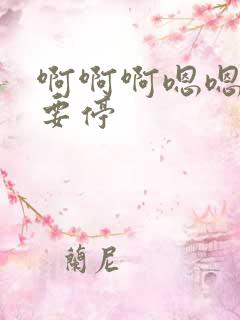 啊啊啊嗯嗯
要停
蘭尼